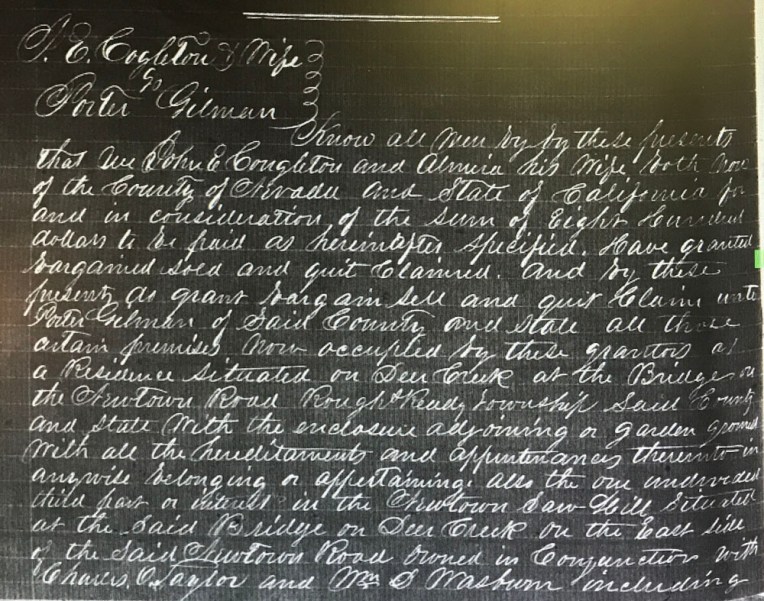 J. E. Cogleton & Wife
to
Porter Gilman
Know all Men by by these presents
that We John E Congleton and Almira his Wife, both Now
of the County of Nevada and State of California for
and in consideration of the sum of Eight Hundred
dollars to be paid as hereinafter specified. Have granted
bargained sold and quit Claimed. and by these
presents do grant bargain sell and quit Claim unto
Porter Gilman of Said County and State all those
certain premises Now occupied by these grantors as
a Residence situated on Deer Creek at the Bridge on
the Newtown Road Rough & Ready Township Said County
and State With the enclosure adjoining or garden ground
With all the hereditaments and appurtenances thereunto in
anywise belonging or appertaining also the one undivided
third part or interest in the Newtown Saw Mill Situated
at the Said Bridge on Deer Creek on the East side
of the Said Newtown Road owned in Conjunction with
Charles O. Taylor and Wm S Wasburn including